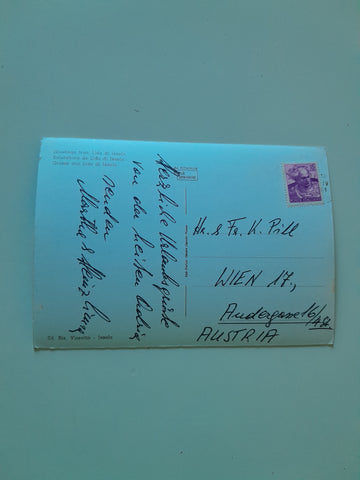 Greetings from Lido di Jesolo
Salutations de Lido di Jesolo
Grüsse aus Lido di Jesolo
Herzliche Urlaubsgrüße
von der heißen Adria
senden
Martha &
Ed. Rix. Vianello - Jesolo
Hr. & Fr. K. Pill
WIEN 17.,
Andergasse 16/
AUSTRIA